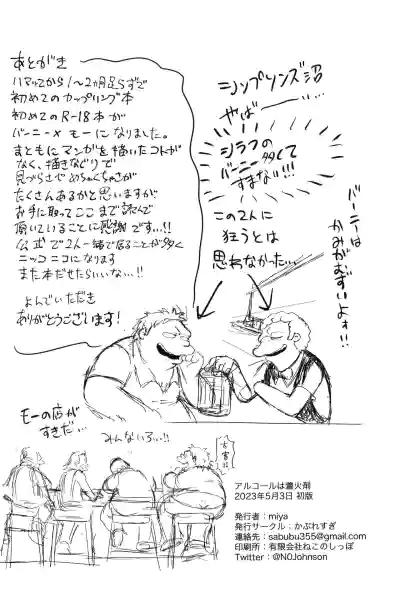 あとがき
ハマってから1〜2か月足らずで
初めてのカップリング本
初めてのR-18本が
バーニー×モーになりました。
まともにマンガを描いたコトが
なく、描きなぐりで
見づらさでめちゃくちゃが
たくさんあるかと思いますが
お手に取ってここまで読んで
頂いていることに感謝です…!!
公式で2人一緒で居ることが多く
ニッコニコになります
また本だせたらいいな…!!
よんでいただき
ありがとうございます!
シンプソンズ沼
やばー……
シラフの
バーニー多くて
すまない!!!
この2人に
狂うとは
思わなかった…
バーニーは
かみがむずいよぉ!!
モーの店が
すきだ…
みんないろ…!!
アルコールは着火剤
2023年5月3日 初版
発行者：miya
発行サークル：かぶれすぎ
連絡先：sabubu355@gmail.com
印刷所：有限会社ねこのしっぽ
Twitter：@N0Johnson